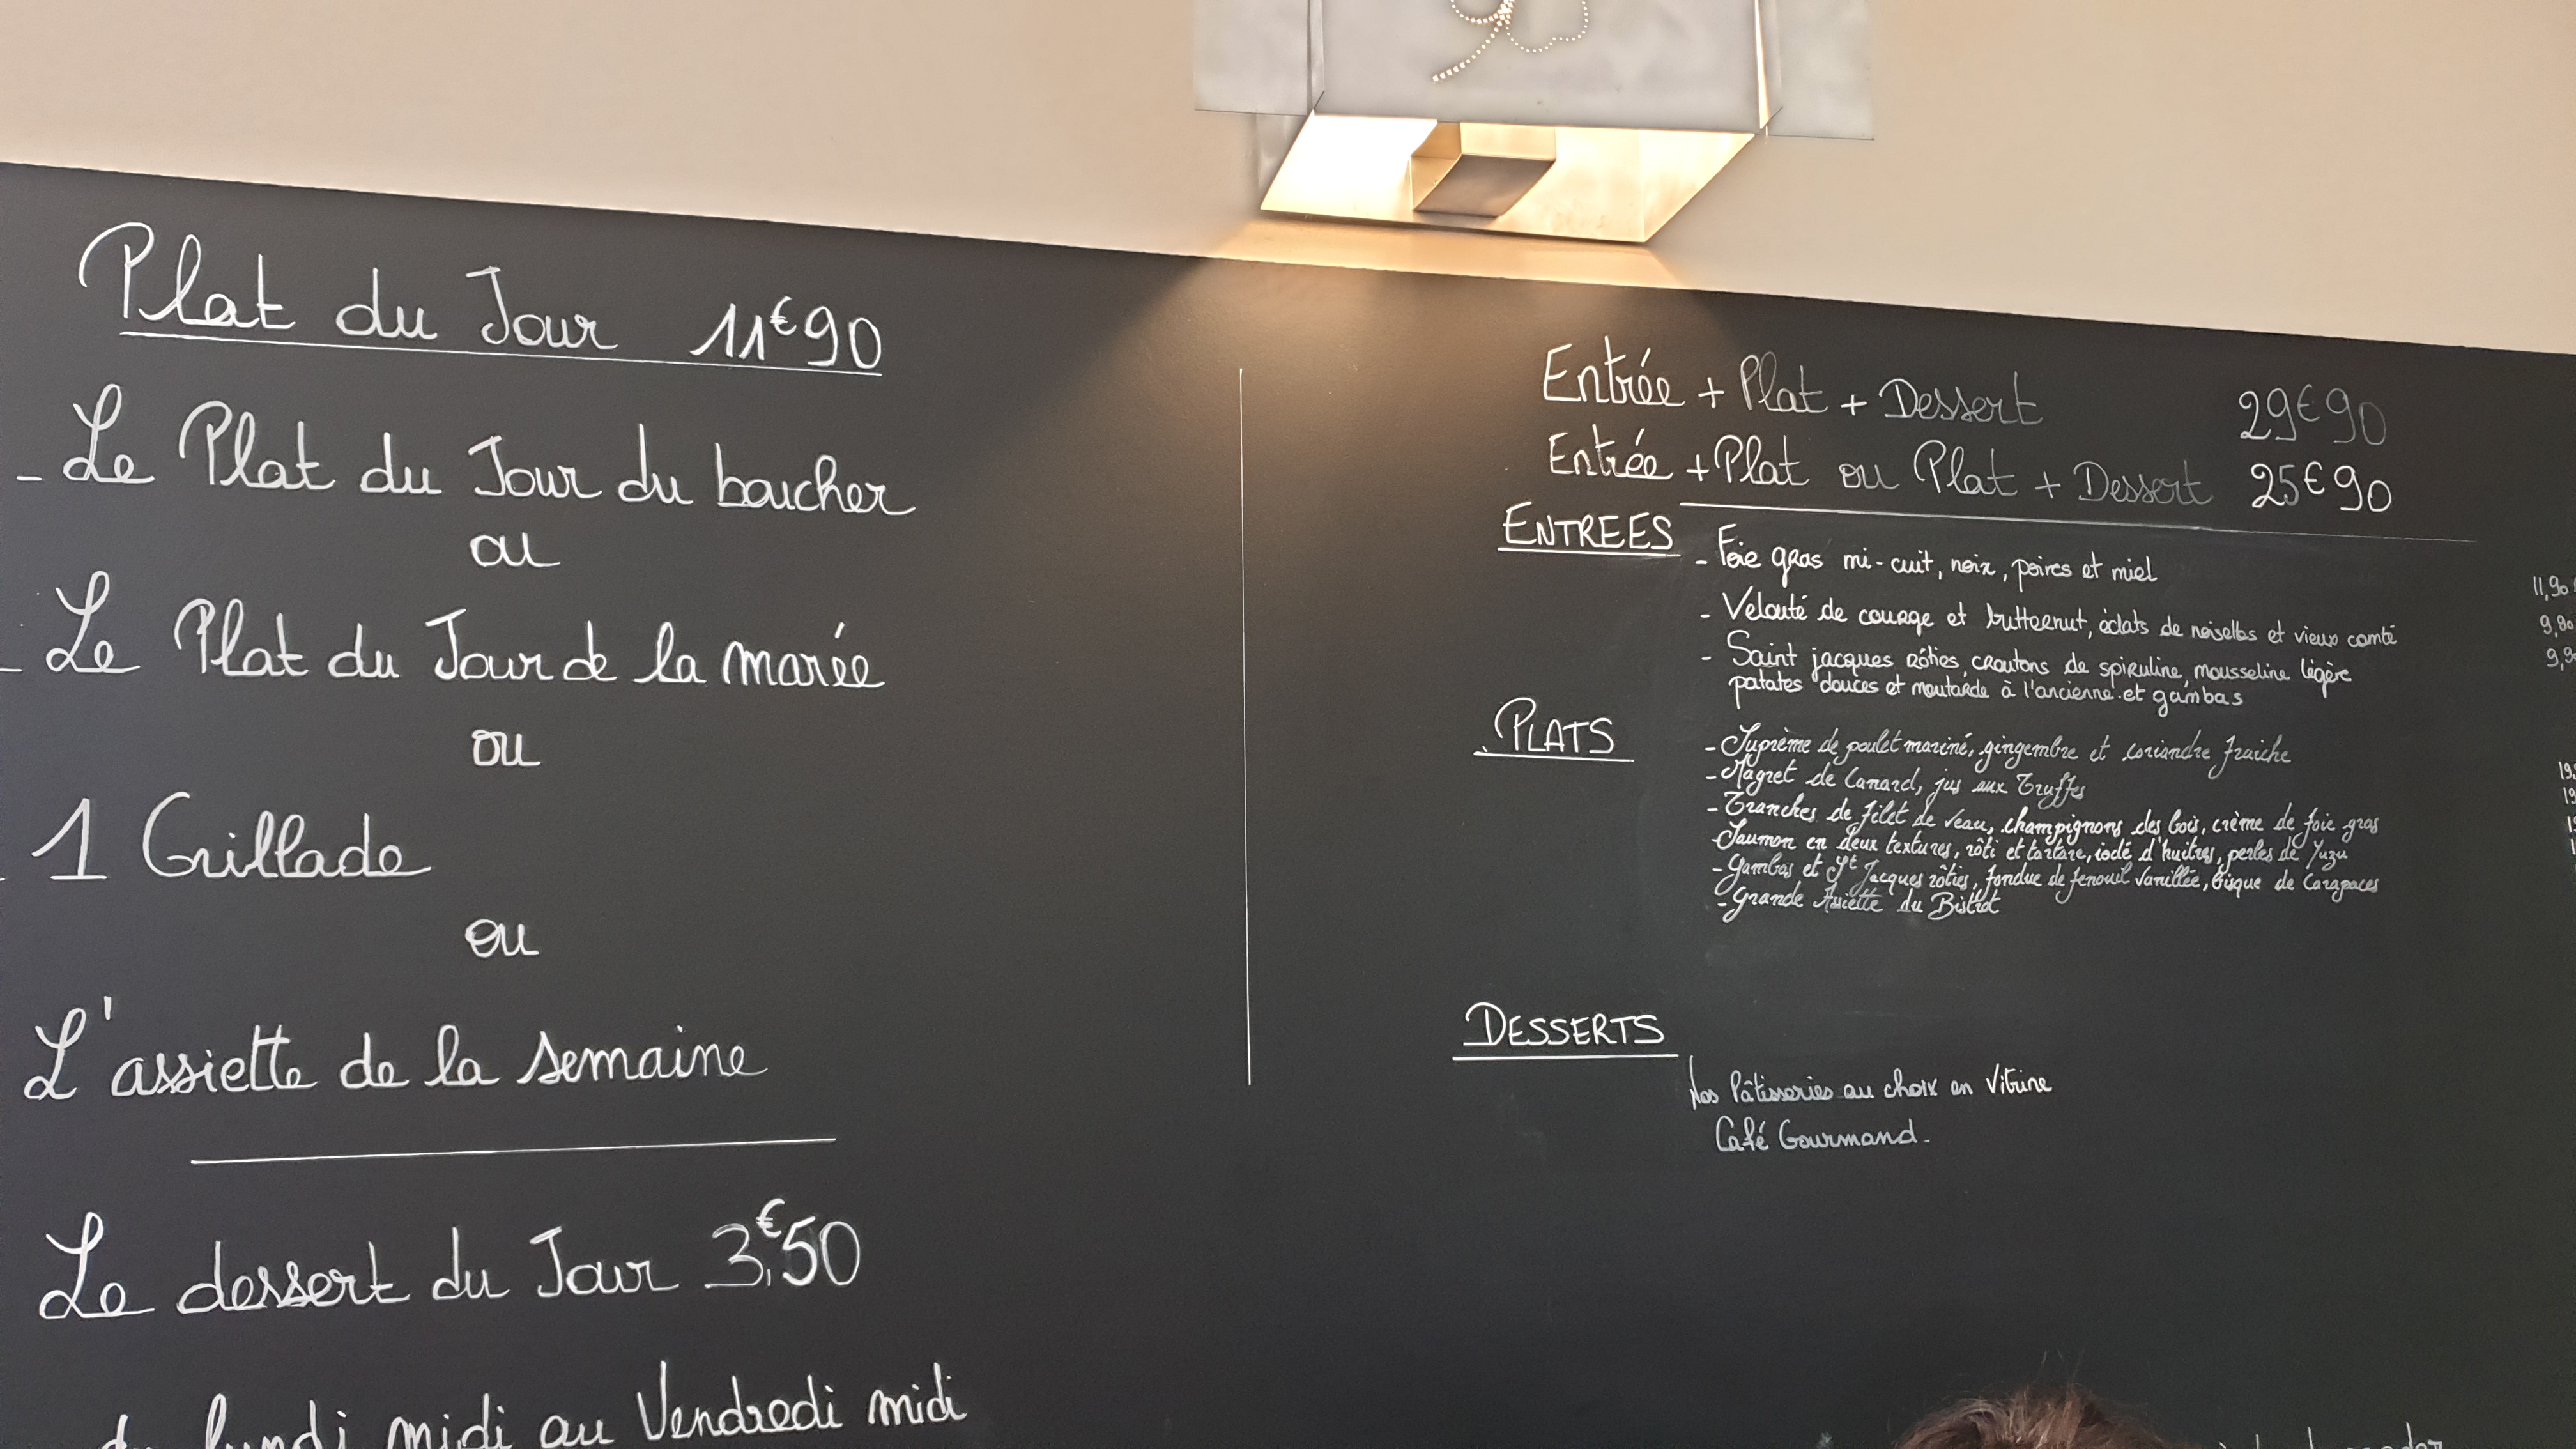 Plat du Jour 11€90
- Le Plat du Jour du boucher
ou
- Le Plat du Jour de la marée
ou
- 1 Grillade
ou
L'assiette de la semaine
Le dessert du Jour 3,€50
du lundi midi au Vendredi midi
Entrée + Plat + Dessert 29€90
Entrée + Plat ou Plat + Dessert 25€90
ENTREES
- Foie gras mi-cuit, noix, poires et miel 11,90
- Velouté de courge et butternut, éclats de noisettes et vieux comté 9,90
- Saint jacques rôties, croutons de spiruline, mousseline légère
patates douces et moutarde à l'ancienne et gambas
PLATS
- Suprème de poulet mariné, gingembre et coriandre fraiche
- Magret de Canard, jus aux Truffes
- Tranches de filet de veau, champignons des bois, crème de foie gras
- Saumon en deux textures, rôti et tartare, iodé d'huitres, perles de Yuzu
- Gambas et St Jacques rôties, fondue de fenouil vanillée, bisque de Carapaces
- Grande Assiette du Bistrot
DESSERTS
Nos Pâtisseries au choix en Vitrine
Café Gourmand.